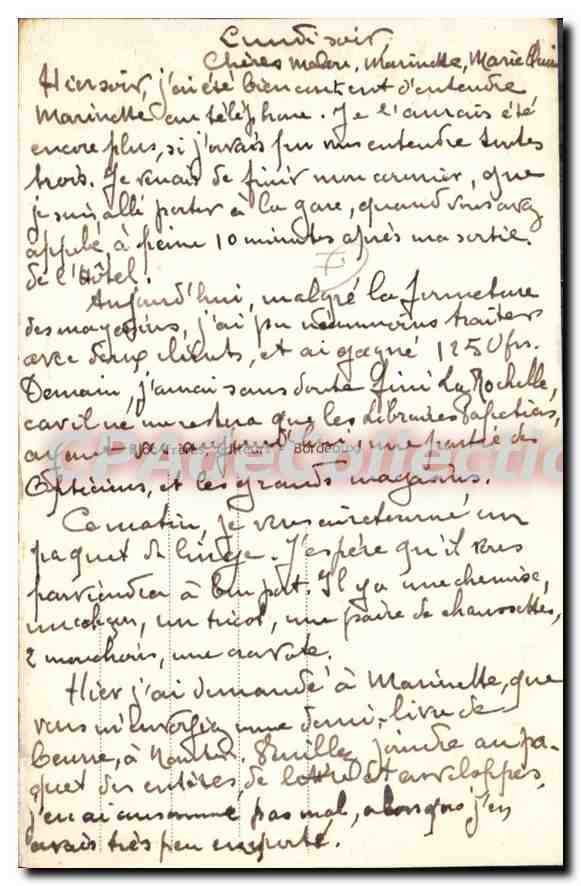 Lundi soir
Chères Madou, Marinette, Marie
Hier soir, j'ai été bien content d'entendre
Marinette au téléphone. Je l'aurais été
encore plus, si j'avais pu vous entendre toutes
trois. Je venais de finir mon courrier, que
je suis allé porter à la gare, quand vous avez
appelé, à peine 10 minutes après ma sortie
de l'Hôtel.
Aujourd'hui, malgré la fermeture
des magasins, j'ai pu néanmoins traiter
avec deux clients, et ai gagné 1250 frs.
Demain, j'aurai sans doute fini La Rochelle,
car il ne me restera que les Libraires Papetiers,
ayant vu, aujourd'hui, une partie des
R/66 Frères, Éditeurs - Bordeaux
CPADeCollection
Opticiens, et les grands magasins.
Ce matin, je vous ai retourné un
paquet de linge. J'espère qu'il vous
parviendra à bon port. Il y a une chemise,
un caleçon, un tricot, une paire de chaussettes,
2 mouchoirs, une cravate.
Hier j'ai demandé à Marinette, que
vous m'envoyiez une demi-livre de
beurre, à Veuillez joindre au pa-
quet des entêtes de lettre et enveloppes,
j'en ai consommé pas mal, alors que j'en
avais très peu emporté.